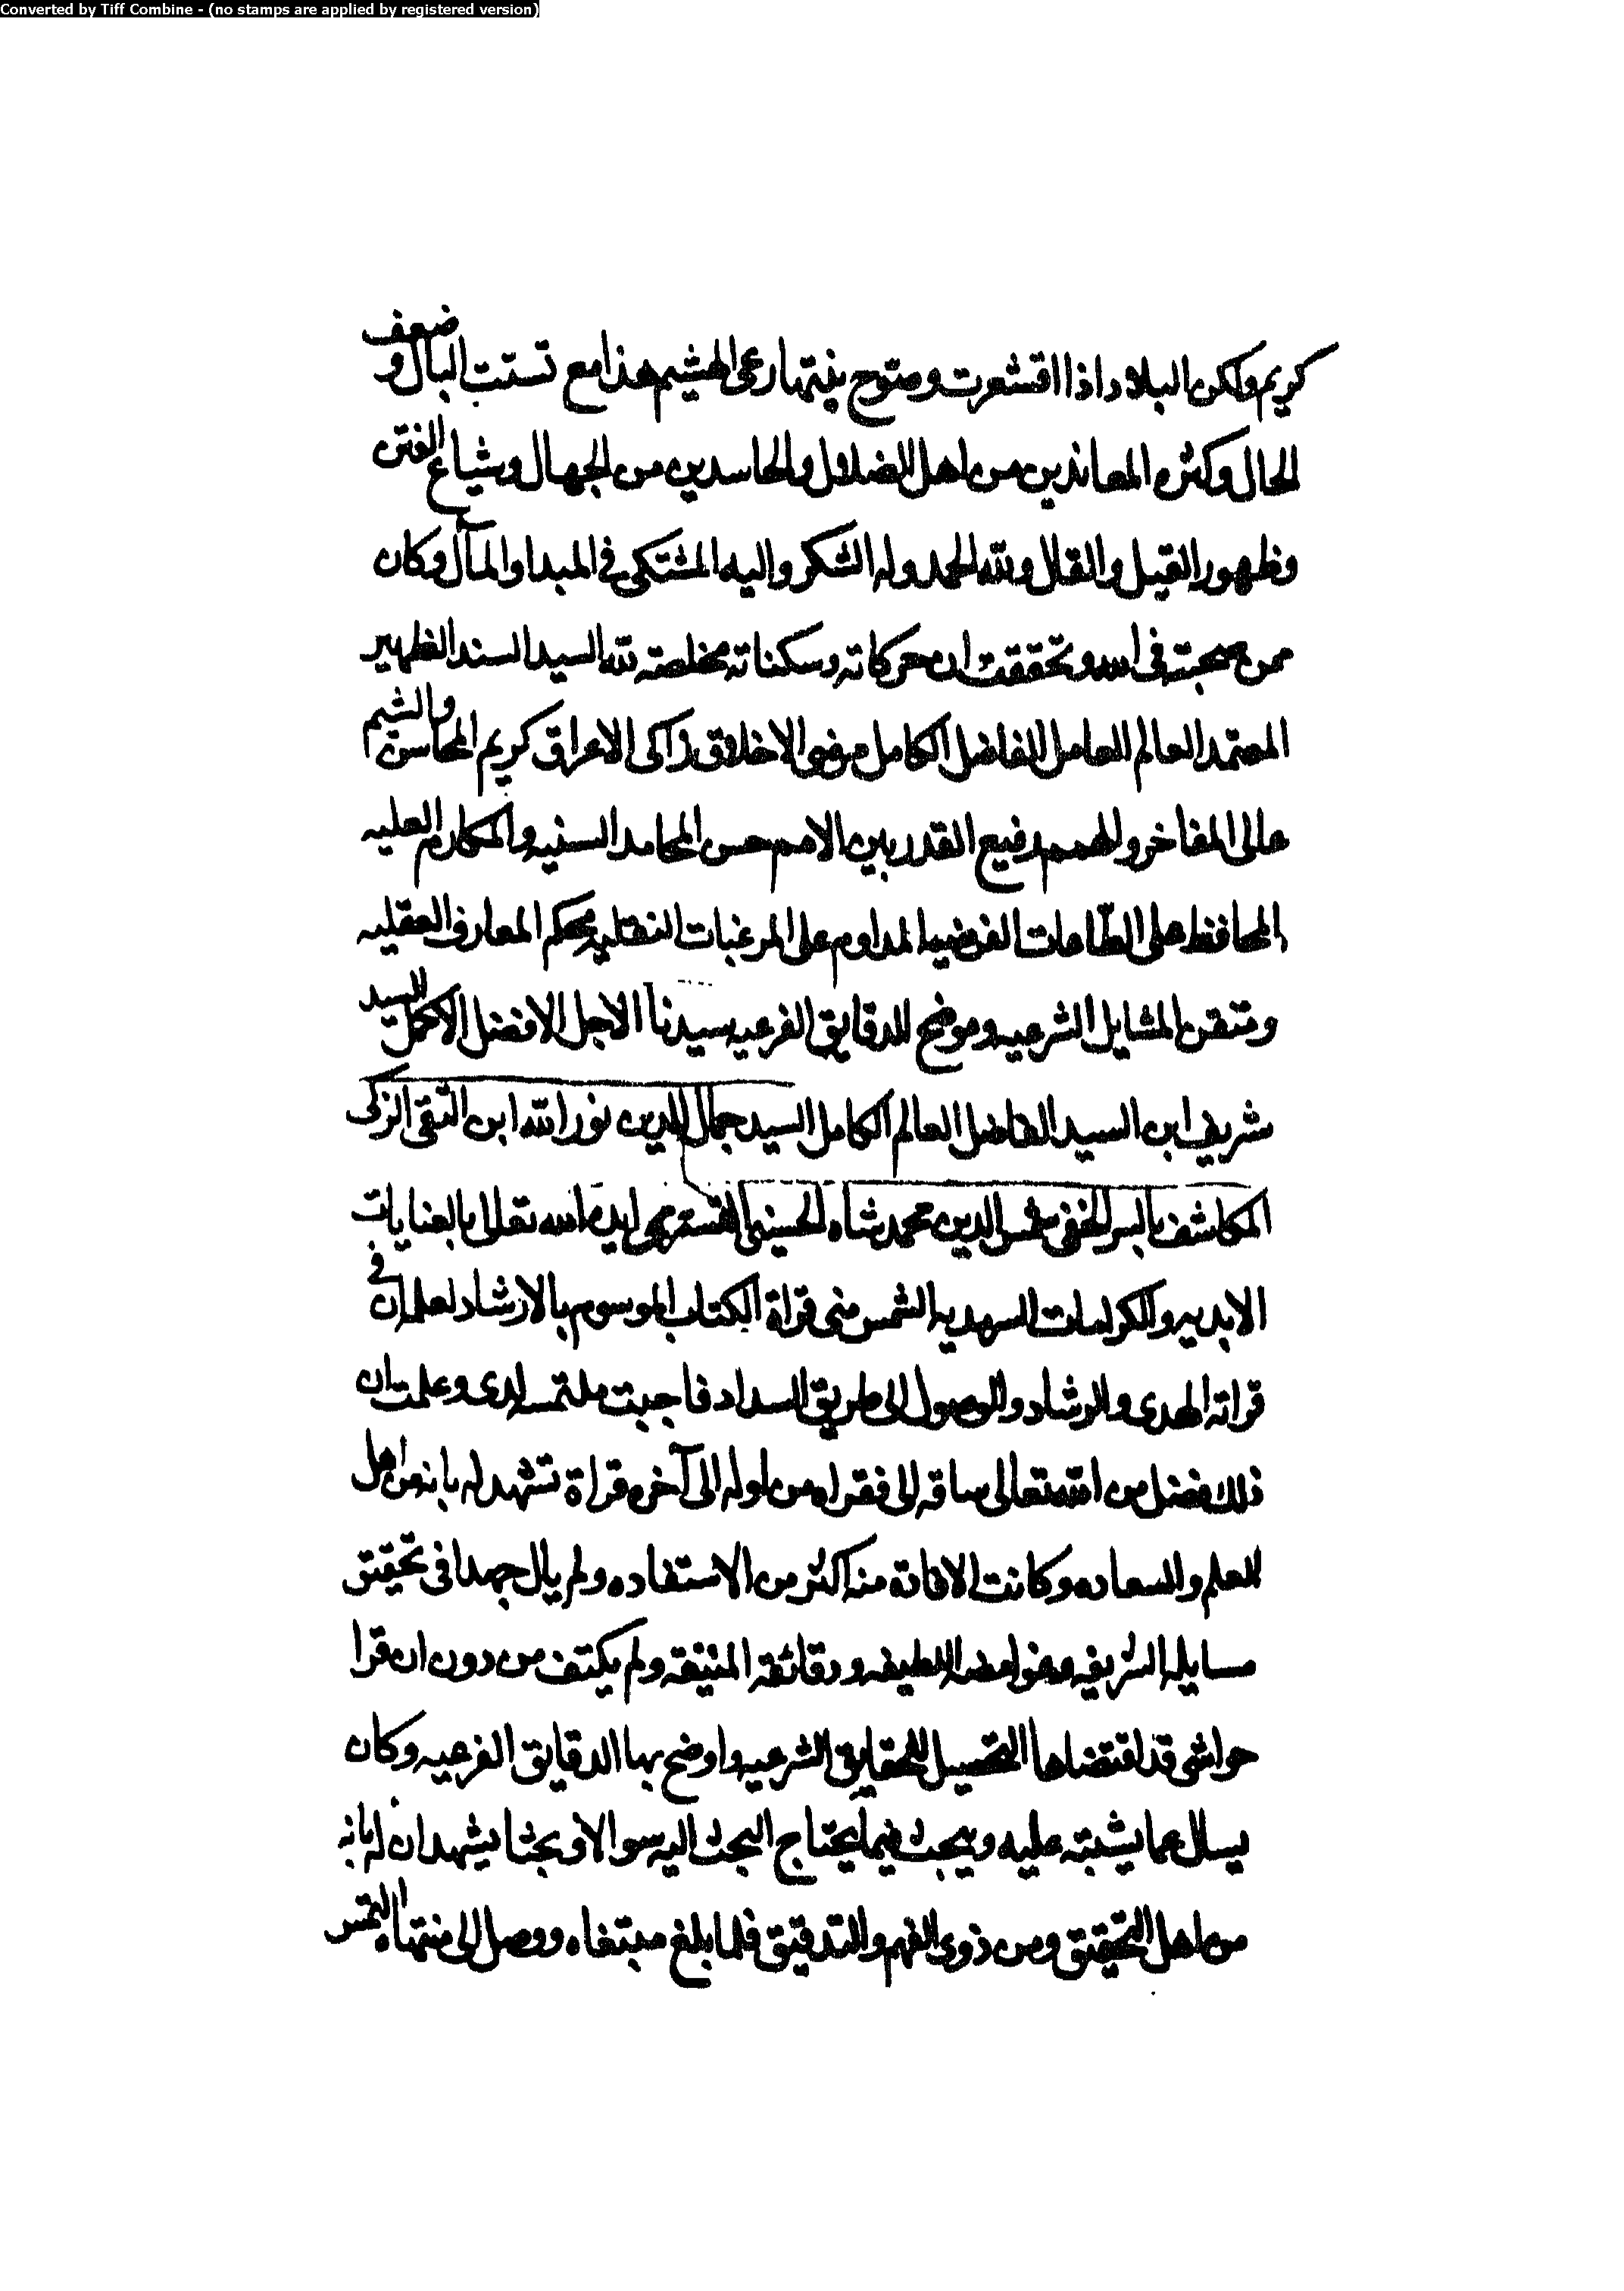 Converted by Tiff Combine - (no stamps are applied by registered version)
كريم ولكن البلاد اذا اقشعرت وصوح نبتها رعى الهشيم هذا مع تشتت البال و ضعف
الحال وكثره المعاندين من اهل الضلال والحاسدين من الجهال وشياع الفتن
وظهور القيل والقال ولله الحمد وله الشكر واليه المشتكى في المبدا والمآل وكان
ممن صحبته في الله وتحققت ان حركاته وسكناته مخلصته لله السيد السند الظهير
المعتمد العالم العامل الفاضل الكامل مرضى الاخلاق زاكى الاعراق كريم المحاسن والشيم
على المفاخر والهمم رفيع القدر بين الامم حسن المحامد السنيه والمكارم العليه
المحافظ على الطاعات الفرضيه المداوم على المرغبات النفليه محكم المعارف العقليه
ومتقن المشايل الشرعيه وموضح الدقايق الفرعيه سيدنا الاجل الافضل الاكمل السيد
شريف ابن السيد الفاضل العالم الكامل السيد جمال الدين نور الله ابن التقى الزكى
المكاشف بالسر الخفى شمس الدين محمد شاه الحسينى التسترى ايده الله تعالى بالعنايات
الابديه والكرامات السرمديه التمس منى قراة الكتاب الموسوم بالارشاد لعله ان في
قراته الهدى والرشاد والوصول الى طريق السداد فاجبت ملتمسه لدى وعلمت ان
ذلك فضل من الله تعالى ساقه الى فقراه من اوله الى آخره قراة تشهد له بانه من اهل
العلم والسعاده وكانت الافادة منه اكثر من الاستفاده ولم يال جهدا فى تحقيق
مسايله الشريفه وغوامضه اللطيفه ودقائقه المنيفه ولم يكتف من دون ان قرا
حواشى قد اقتضاها التحصيل للحقايق الشرعيه واوضح بها الدقايق الفرعيه وكان
يسال عما يشتبه عليه ويبحث فيما يحتاج البحث اليه سوالا وبحثا يشهدان له بانه
من اهل التحقيق ومن ذوى الفهم والتدقيق فلما بلغ مبتغاه ووصل الى منتهاه التمس